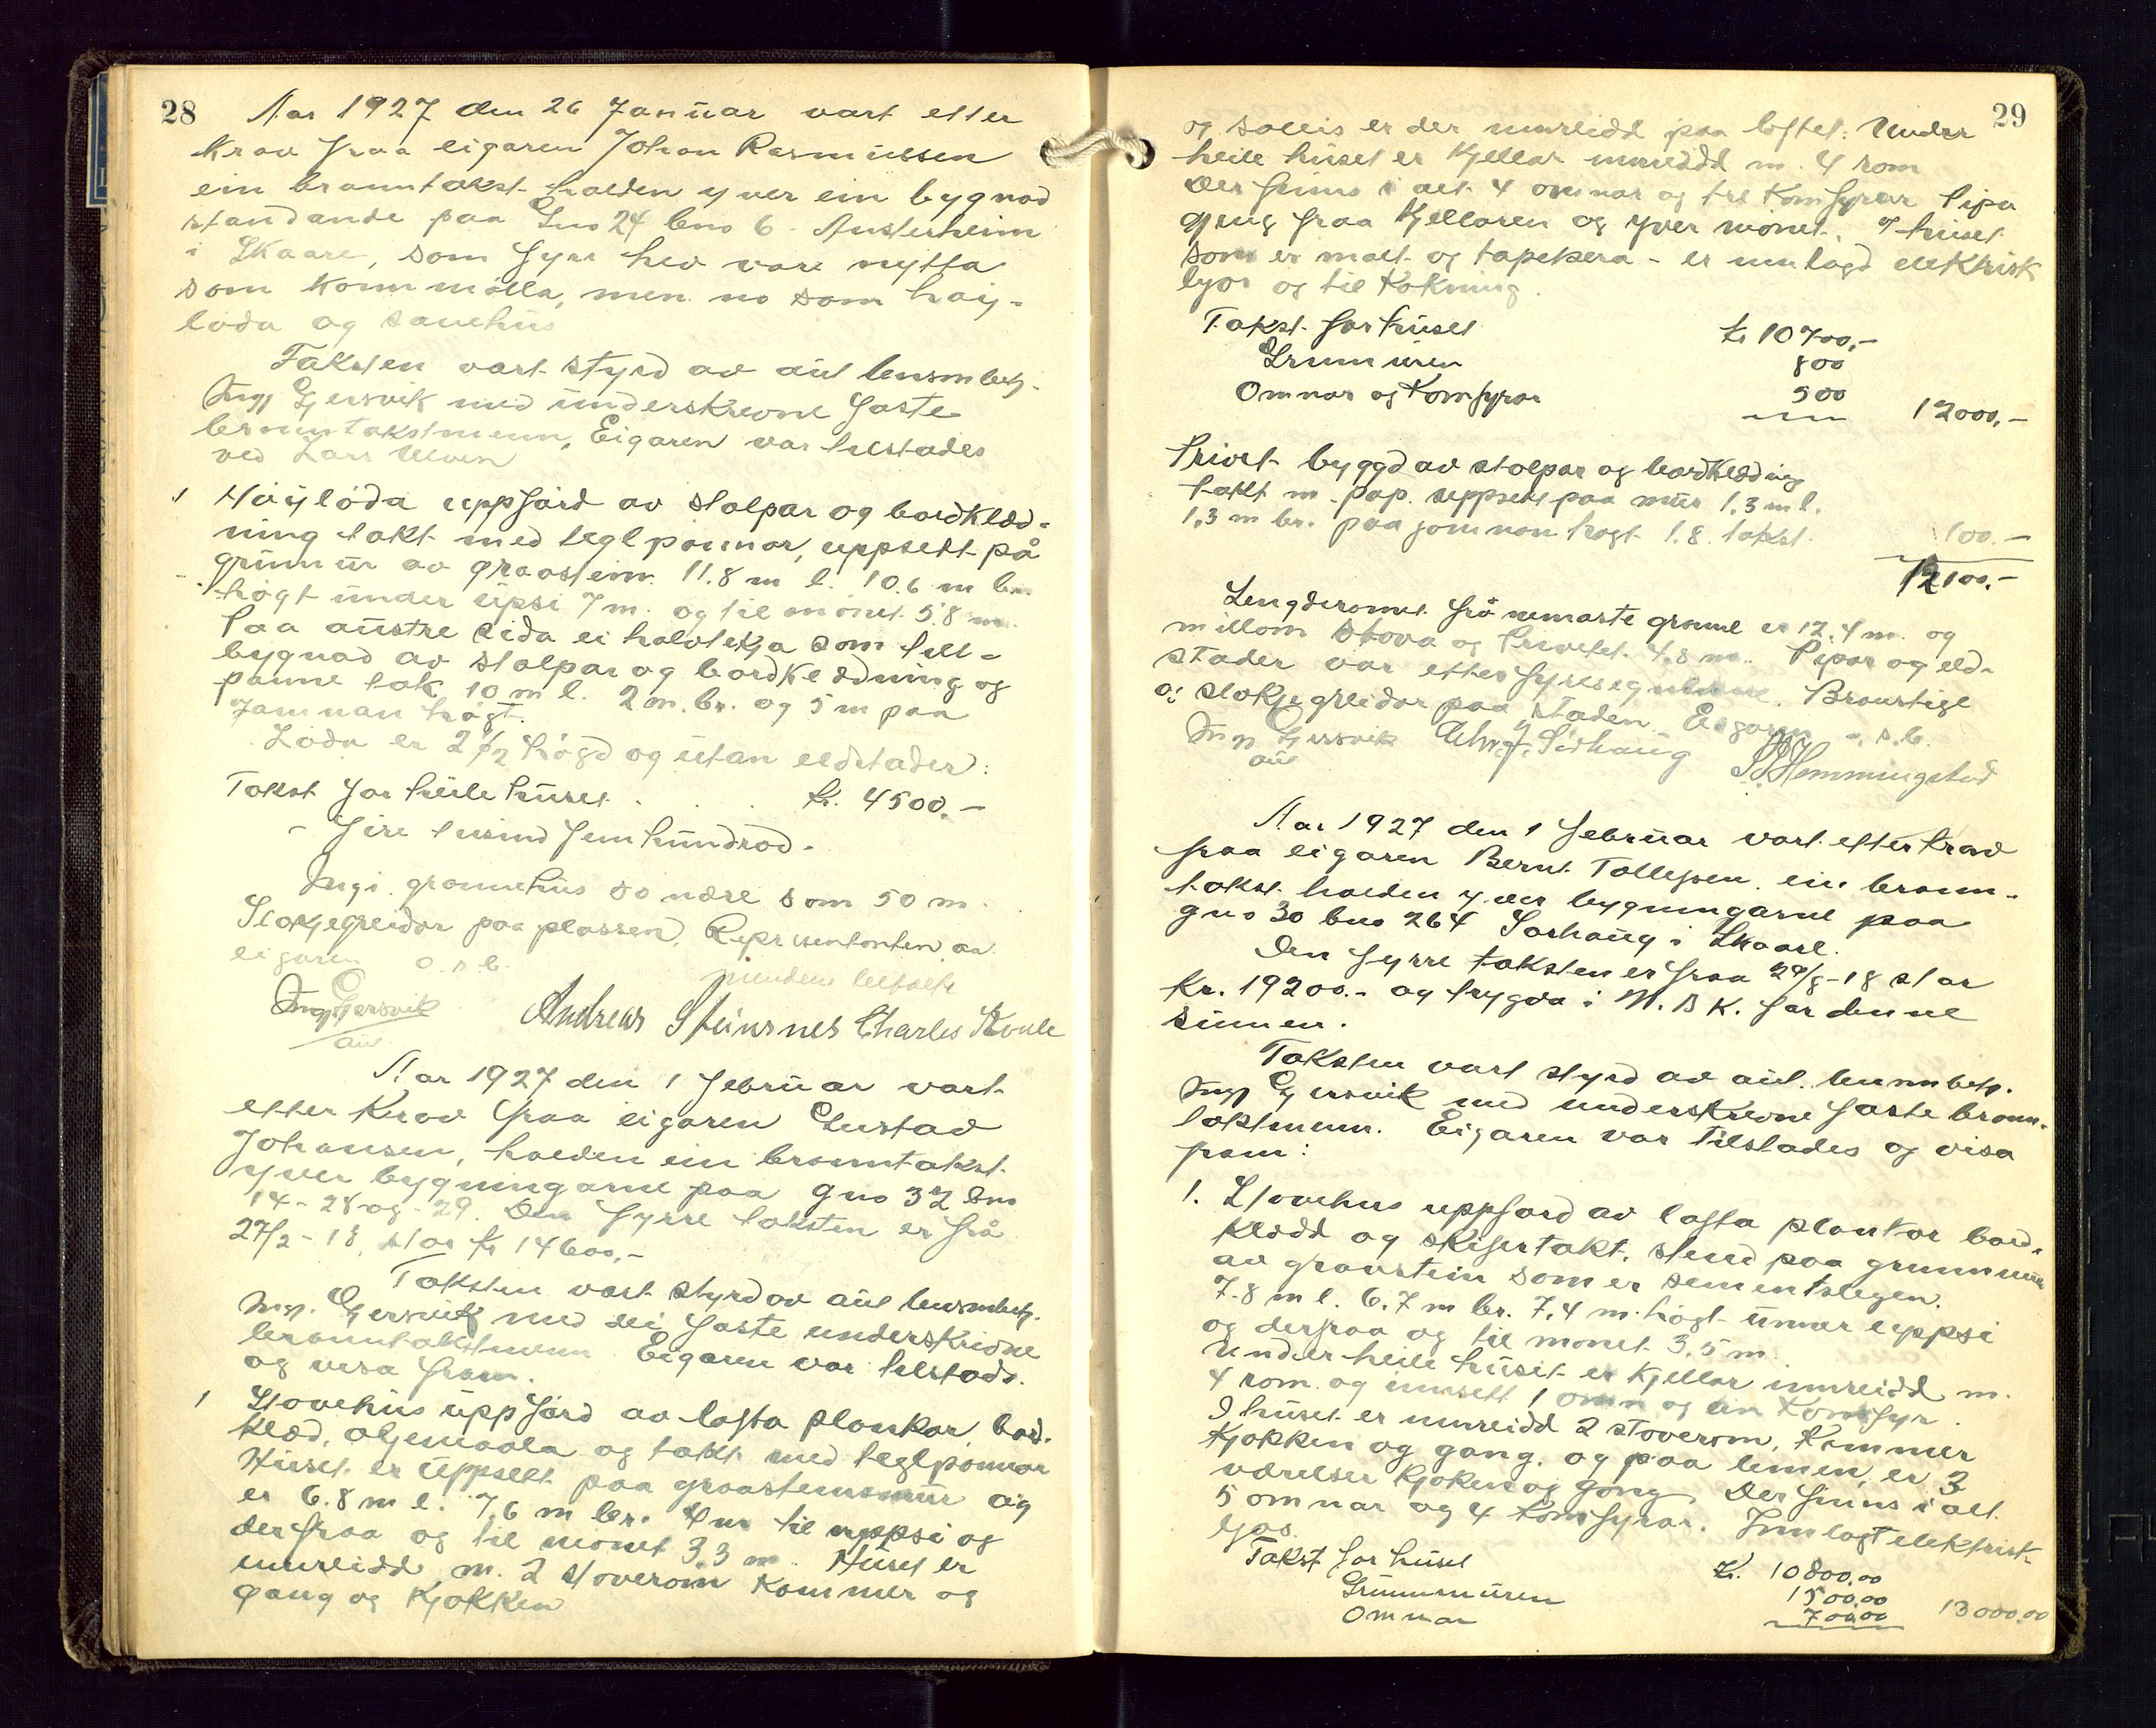 28
Aar 1927 den 26 Januar vart etter
krav fraa eigaren Johan Rasmussen
ein branntakst halden yver ein bygnad
standande paa Gno 24 bno 6 Austerheim
i Skaare, som fyrr hev vore nytta
som kornmölla, men no som höy-
löda og sauehus
Taksten vart styrd av aut lensmbetj.
Ingv Gjersvik med underskrevne faste
branntakstmenn, Eigaren var tilstades
ved Lars
1 Höylöda uppförd av stolpar og bordklæd-
ning takt med teglpannor, uppsett på
grunnur av graastein. 11.8 m l. 10.6 m br.
högt under upsi 7 m. og til mönet 5.8 m
Paa austre sida ei halvtekja som till-
bygnad av stolpar og bordklædning og
panne tak 10 m l. 2 m. br. og 5 m paa
jamnan högt.
Löda er 2 1/2 högd og utan eldstader:
Takst for heile huset . . . kr. 4500.-
- fire tusind fem hundrad -
Ingi grannehus so nære som 50 m.
Slökjegreidor paa plassen. Representanten av
eigaren o.s.b.
Ingv Gjersvik
aut
Andreas Steinsnes Charles
Aar 1927 den 1 februar vart
etter krav fraa eigaren Gustav
Johansen, halden ein branntakst
yver bygningarne paa gno 32 bno
14 - 28 og - 29. Den fyrre taksten er frå
27/2 - 18, stor kr 14600,-
Taksten vart styrd av aut lensmbetj.
Ingv. Gjersvik med dei faste underskrivne
branntakstmenn Eigaren var tilstads.
og visa fram.
1 Stovehus uppförd av lafta plankar, bord-
klæd, oljemaala og takt med teglpannor
Huset er uppsett paa graasteinsmur og
er 6.8 m l. 7.6 m br. 4 m til uppsi og
derfraa og til mönet 3.3 m. Huset er
innreidd m. 2 stoverom kammer og
gang og kjökken
29
og soleis er der innreidd paa loftet. Under
heile huset er kjellar innreidd m. 4 rom
Der finns i alt 4 omnar og tre komfyrar Pipa
gjeng fraa kjellaren og yver mönet. I huset
som er malt og tapetsera - er innlagd elektrisk
ljos og til kokning.
Takst for huset kr 10700,-
Grunnuren 800
Omnar og komfyrar 500 12000,-
Privet byggd av stolpar og bordklædning
takt m. pap. uppsett paa mur 1.3 m l.
1.3 m br. paa jamnan högt 1.8. takst 100.-
12100.-
Lengderomet frå nemaste granne er 12.4 m. og
millom stova og Privetet 4.8 m. Pipor og eld-
stader var etter fyresegnerne. Brannstige
og slökjegreidor paa staden. Eigaren o.s.b.
Ingv Gjersvik Chr. J. Sörhaug
aut Hemmingstad
Aar 1927 den 1 februar vart etter krav
fraa eigaren Bernt Tollefsen ein brann-
takst halden yver bygningarne paa
gno 30 bno 264 Sörhaug i Skaare.
Den fyrre taksten er fraa 29/8 - 18 stor
kr. 19200.- og trygda i N.B.K. for denne
summen.
Taksten vart styrd av aut. lensmbetj.
Ingv Gjersvik med underskrevne faste brann-
takstmenn. Eigaren var tilstades og visa
fram:
1. Stovehus uppförd av lafta plankor bord-
klædd og skifertakt, stend paa grunnmur
av graastein som er sementslegen.
7.8 m l. 6.7 m br. 7.4 m. högt under uppsi
og derfraa og til mönet 3.5 m.
Under heile huset er kjellar innreidd m.
4 rom og innsett 1 omn og ein komfyr.
I huset er innreidd 2 stoverom, kammer
kjökken og gang. og paa lemen er 3
værelser kjöken og gang. Der finns i alt
5 omnar og 4 komfyrar. Innlagt elektrisk
ljos.
Takst for huset kr. 10800.00
Grunnmuren 1500.00
Omnar 700.00 13000.00